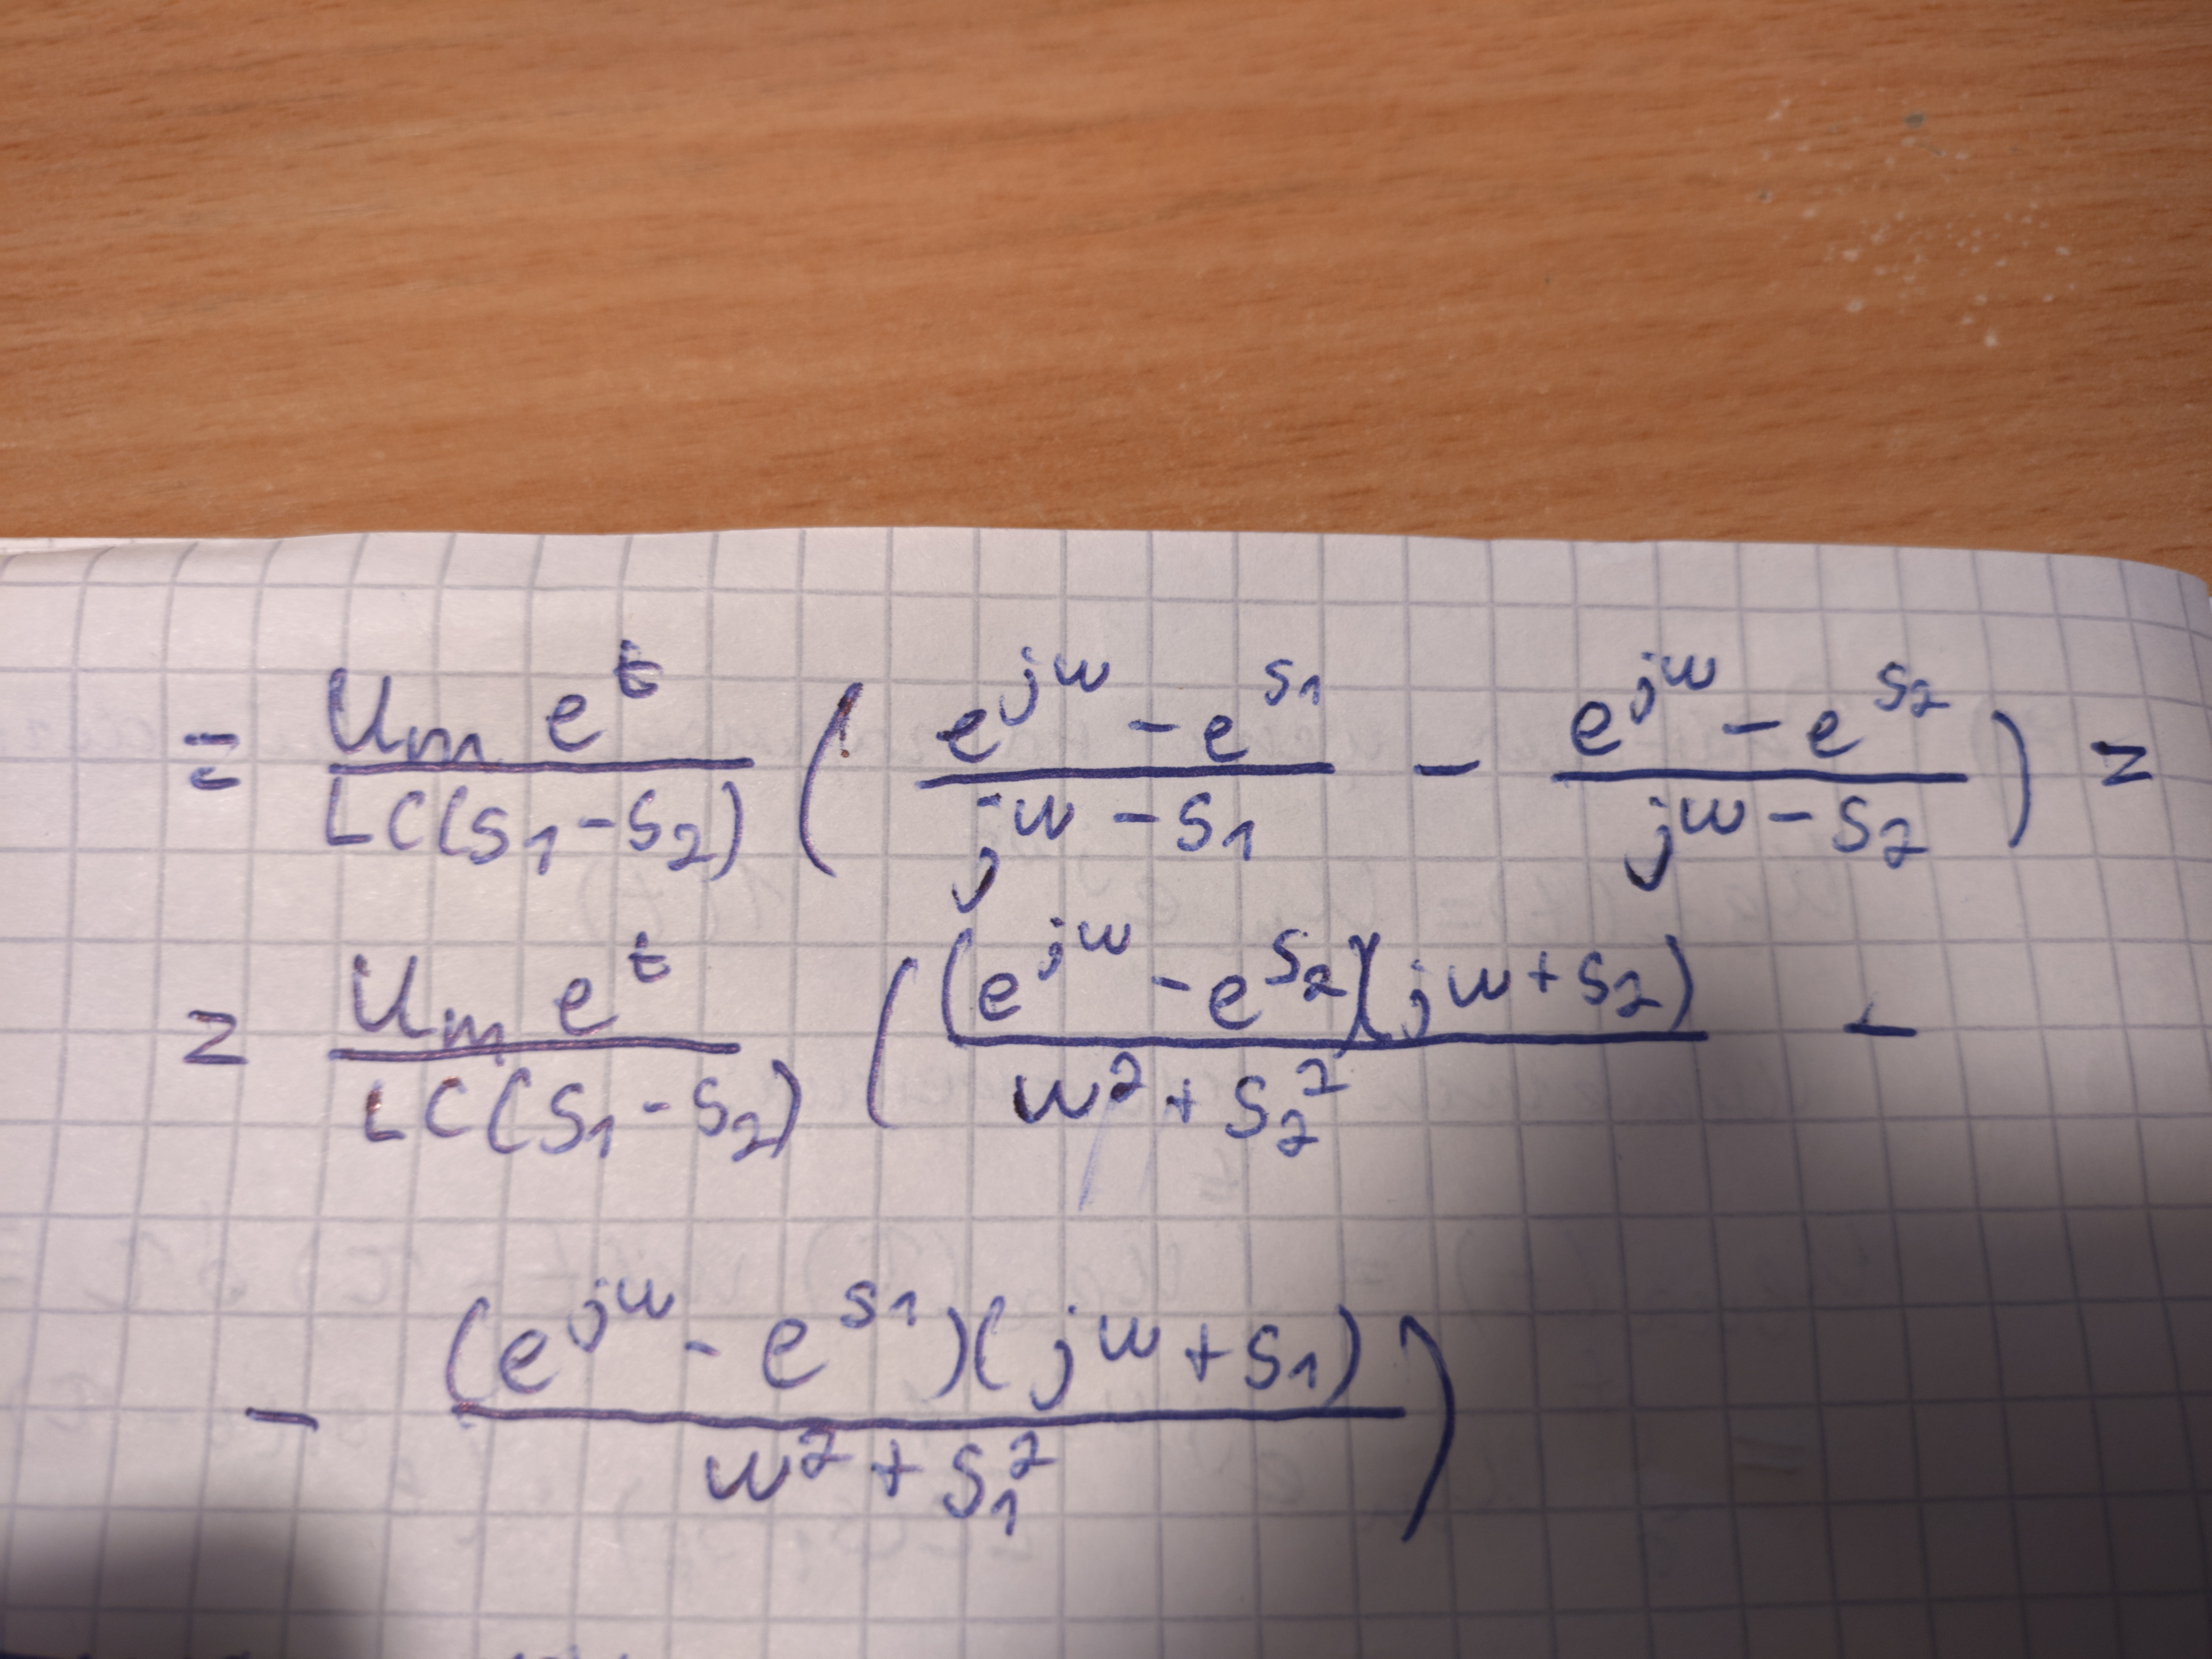 = U_m e^t / LC(s_1 - s_2) ( (e^{jw} - e^{s_1}) / (jw - s_1) - (e^{jw} - e^{s_2}) / (jw - s_2) ) =
= U_m e^t / LC(s_1 - s_2) ( (e^{jw} - e^{s_2})(jw + s_2) / (w^2 + s_2^2) -
- (e^{jw} - e^{s_1})(jw + s_1) / (w^2 + s_1^2) )